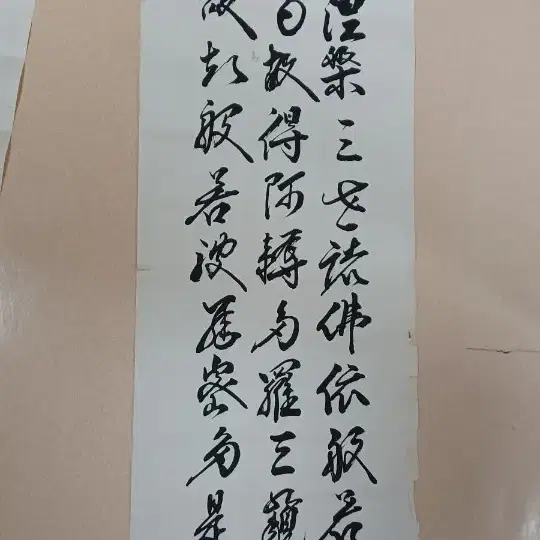 涅槃三世諸佛依般若
故得阿耨多羅三藐
故知般若波羅蜜多是